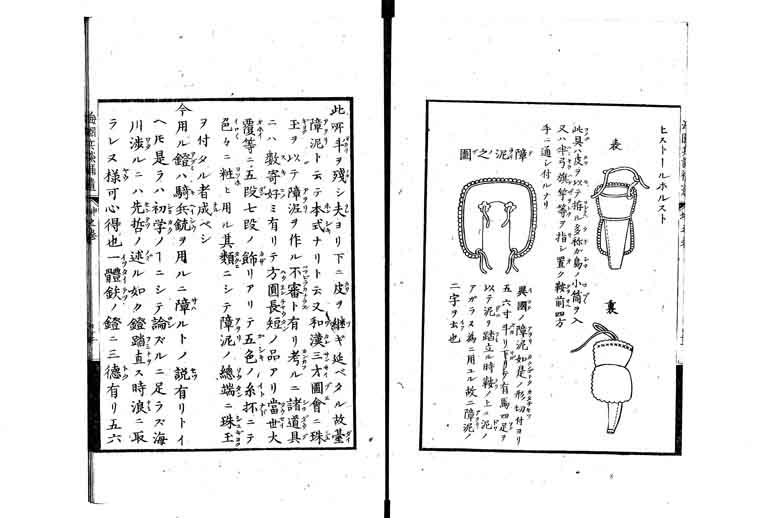 ヒストールホルスト
表
裏
此具ハ皮ヲ以テ拵ル多称か鳥ノ小筒ヲ入
又ハ半弓旗竿等ヲ指シ置ク鞍前四方
手ニ通シ付ルナリ
障泥之圖
異國ノ障泥如是ノ形切付ヨリ
五六寸半リ下ケ有馬四足ヲ
以テ泥ヲ踏立ル時鞍ノ上ニ泥ノ
アガラヌ為ニ用ユル故ニ障泥ノ
二字ヲ云也
此所斗ヲ殘シ夫ヨリ下ニ皮ヲ継ギ延ベタル故臺
障泥ト云テ本式ナリト云又和漢三才圖會ニ珠
玉ヲ以テ障泥ヲ作ル不審ト有リ考ルニ諸道具
ニハ數寄好ミ有リテ方圓長短ノ品アリ當世大
覆等ニ五段七段ノ飾リアリテ五色ノ糸抔ニテ
色々ニ粧ヒ用ル其類ニシテ障泥ノ總端ニ珠玉
ヲ付タル者成ベシ
今用ル鐙ハ騎兵銃ヲ用ルニ障ルトノ説有リトイ
ヘ𪜈是ラハ初学ノヿニシテ論ズルニ足ラズ海
川渉ルニハ先哲ノ述ル如ク鐙踏直シ時浪ニ取
ラレヌ様可心得也一體鉄ノ鐙ニ三德有リ五六